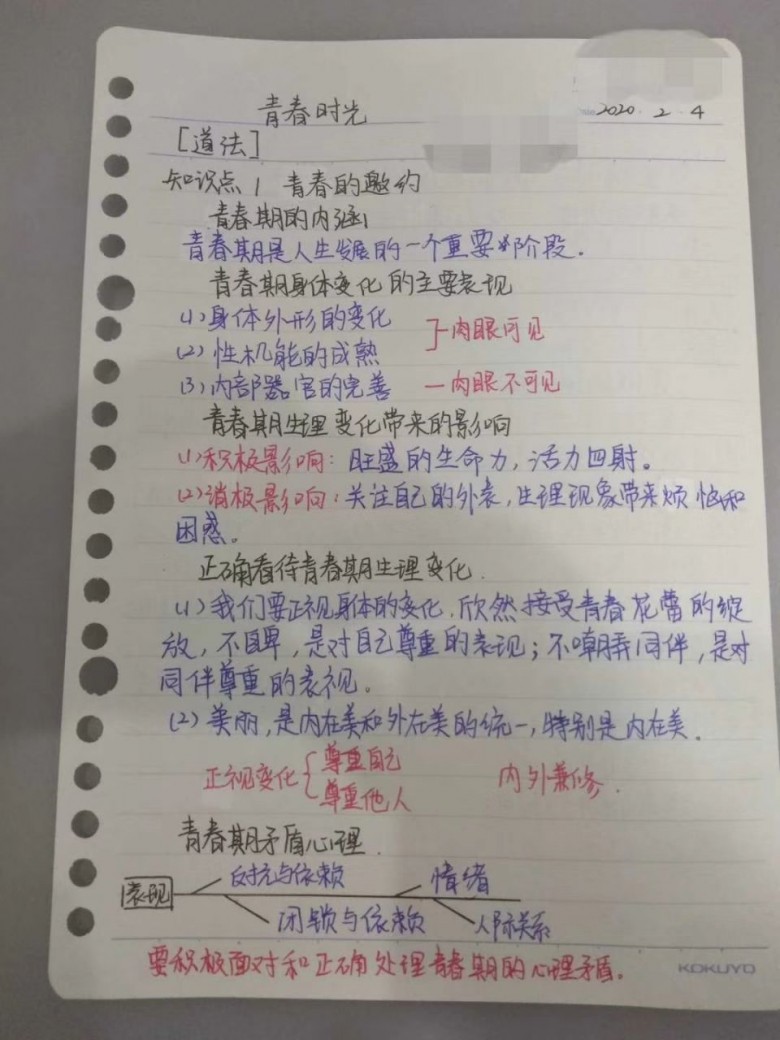 青春时光
2020 2 4
[道法]
知识点1 青春的邀约
青春期的内涵
青春期是人生发展的一个重要阶段.
青春期身体变化的主要表现
(1)身体外形的变化
(2)性机能的成熟
肉眼可见
(3)内部器官的完善 —肉眼不可见
青春期生理变化带来的影响
(1)积极影响:旺盛的生命力,活力四射。
(2)消极影响:关注自己的外表,生理现象带来烦恼和
困惑。
正确看待青春期生理变化.
(1)我们要正视身体的变化,欣然接受青春花蕾的绽
放,不自卑,是对自己尊重的表现;不嘲弄同伴,是对
同伴尊重的表视。
(2)美丽,是内在美和外在美的统一,特别是内在美.
正视变化{尊重自己
尊重他人
内外兼修.
青春期矛盾心理.
表现
反抗与依赖
情绪
闭锁与依赖
人际关系
要积极面对和正确处理青春期的心理矛盾.
KOKUYO